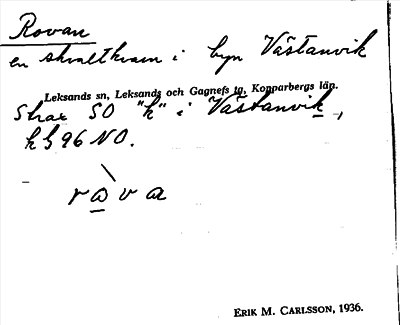 Rovan
en skvaltkvarn i byn Västanvik
Leksands sn, Leksands och Gagnefs tg, Kopparbergs län.
Strax SO "k" i Västanvik,
kb 96 NO.
rova
ERIK M. CARLSSON, 1936.